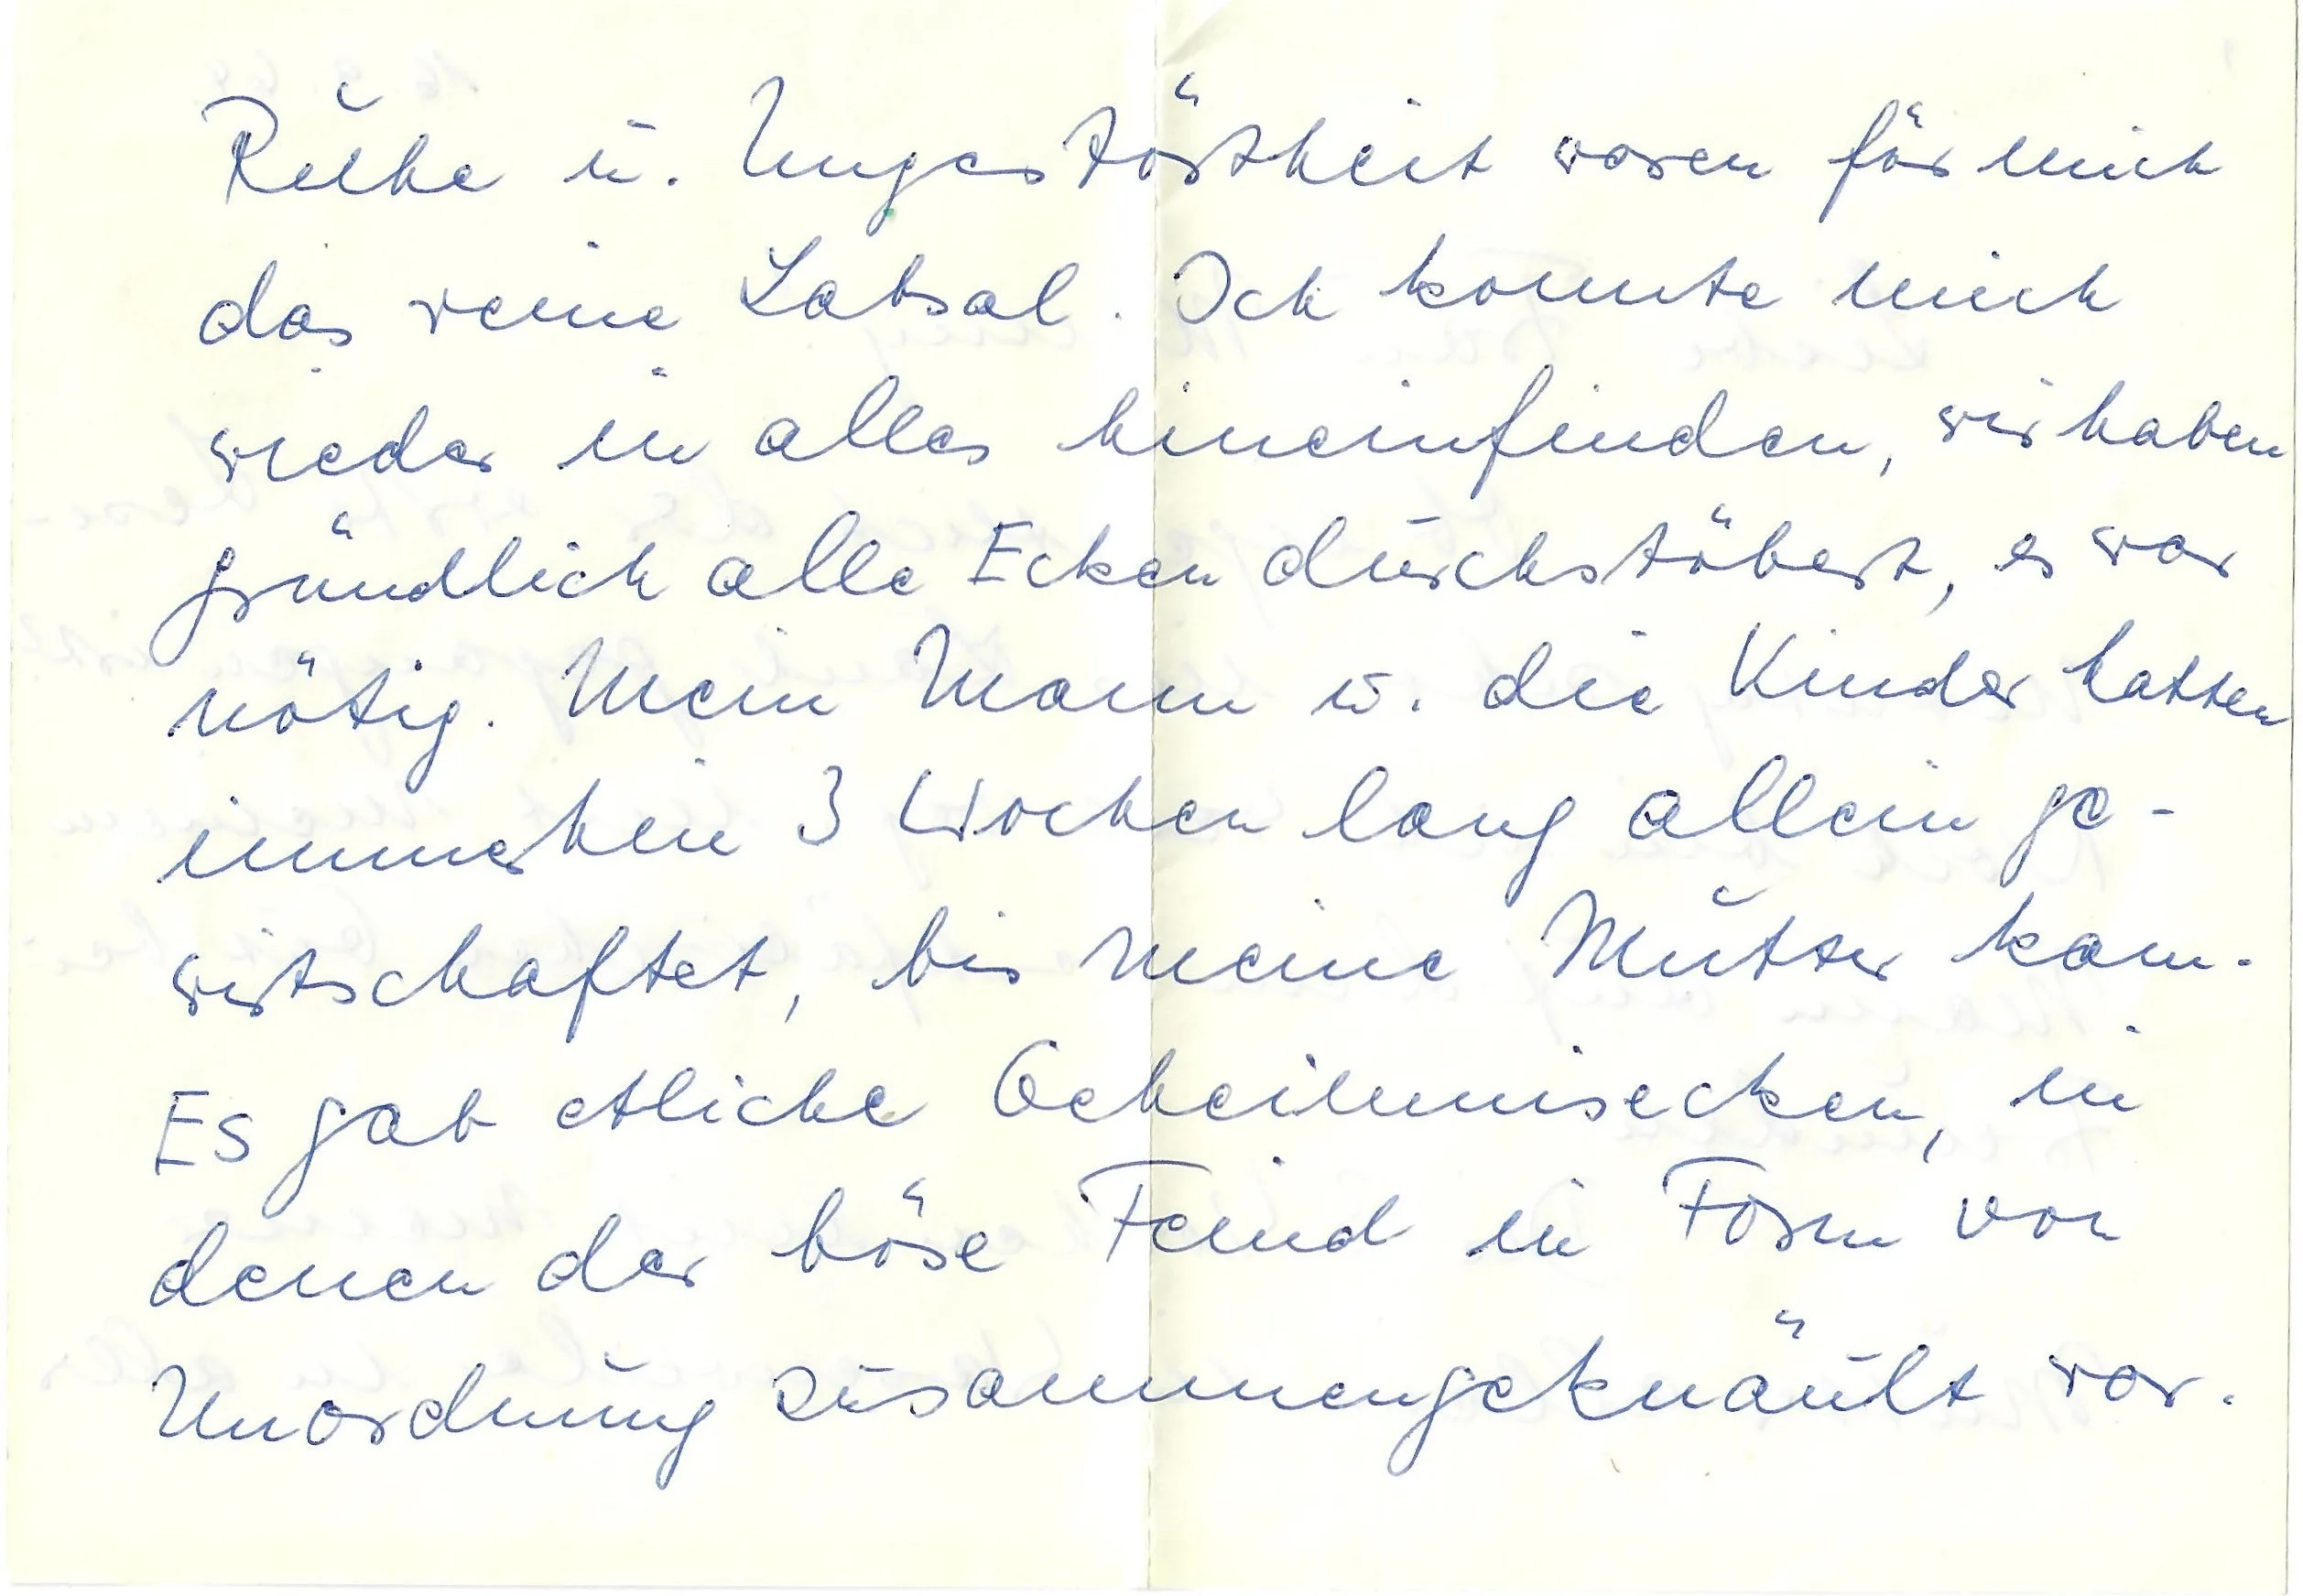 Ruhe u. Ungestörtheit waren für mich
das reine Labsal. Ich konnte mich
wieder in alles hineinfinden, wir haben
gründlich alle Ecken durchstöbert, es war
nötig. Mein Mann u. die Kinder hatten
immerhin 3 Wochen lang allein ge-
wirtschaftet, bis meine Mutter kam.
Es gab etliche Geheimnisecken, in
denen der böse Feind in Form von
Unordnung zusammengeknäult war.